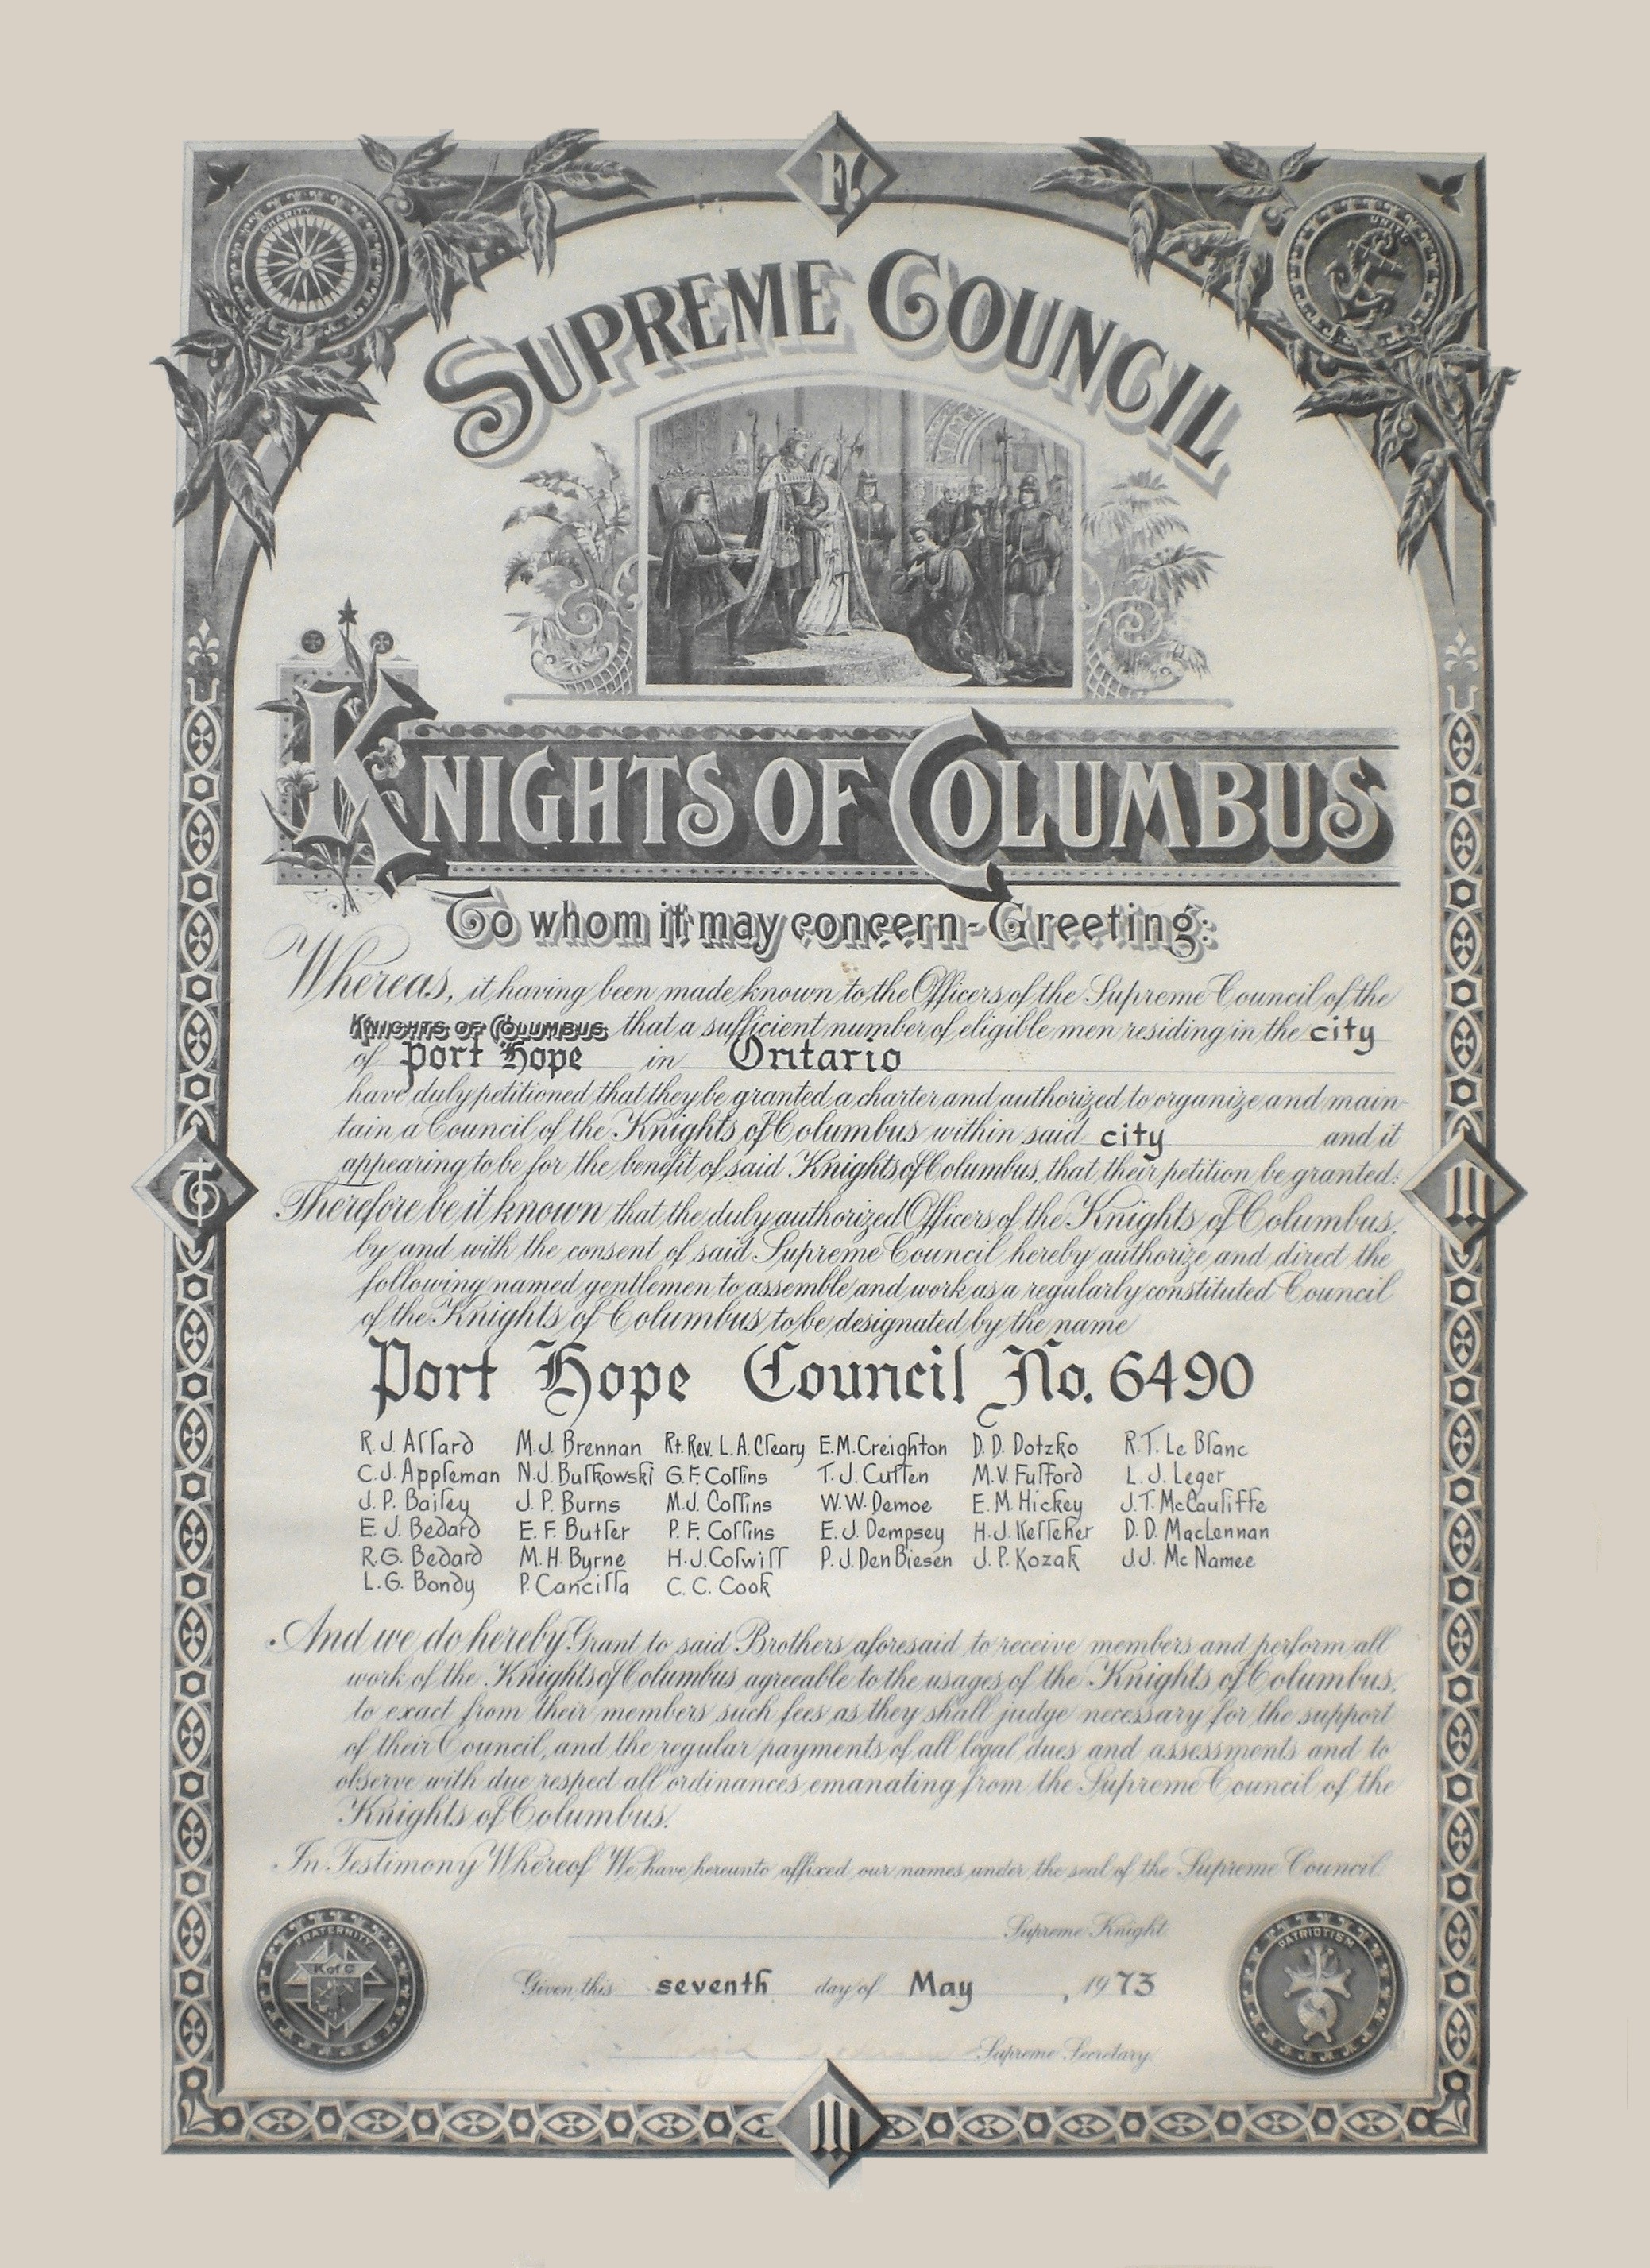 F.
CHARITY
UNITY
SUPREME COUNCIL
KNIGHTS OF COLUMBUS
To whom it may concern-Greeting:
Whereas, it having been made known to the Officers of the Supreme Council of the
KNIGHTS OF COLUMBUS that a sufficient number of eligible men residing in the city
of Port Hope in Ontario
have duly petitioned that they be granted a charter and authorized to organize and main-
tain a Council of the Knights of Columbus within said city and it
appearing to be for the benefit of said Knights of Columbus, that their petition be granted:
Therefore be it known that the duly authorized Officers of the Knights of Columbus,
by and with the consent of said Supreme Council hereby authorize and direct the
following named gentlemen to assemble and work as a regularly constituted Council
of the Knights of Columbus to be designated by the name
Port Hope Council No. 6490
R.J. Allard M.J. Brennan Rt. Rev. L.A. Cleary E.M. Creighton D.D. Dotzko R.T. Le Blanc
C.J. Appleman N.J. Bulkowski G.F. Collins T.J. Cullen M.V. Fulford L.J. Leger
J.P. Bailey J.P. Burns M.J. Collins W.W. Demoe E.M. Hickey J.T. McCauliffe
E.J. Bedard E.F. Butler P.F. Collins E.J. Dempsey H.J. Kelleher D.D. MacLennan
R.G. Bedard M.H. Byrne H.J. Colwill P.J. Den Biesen J.P. Kozak J.J. Mc Namee
L.G. Bondy P. Cancilla C.C. Cook
And we do hereby Grant to said Brothers aforesaid to receive members and perform all
work of the Knights of Columbus agreeable to the usages of the Knights of Columbus,
to exact from their members such fees as they shall judge necessary for the support
of their Council, and the regular payments of all legal dues and assessments and to
observe with due respect all ordinances emanating from the Supreme Council of the
Knights of Columbus.
In Testimony Whereof We have hereunto affixed our names under the seal of the Supreme Council.
Supreme Knight.
FRATERNITY
K of C
PATRIOTISM
Given this seventh day of May, 1973
Supreme Secretary.